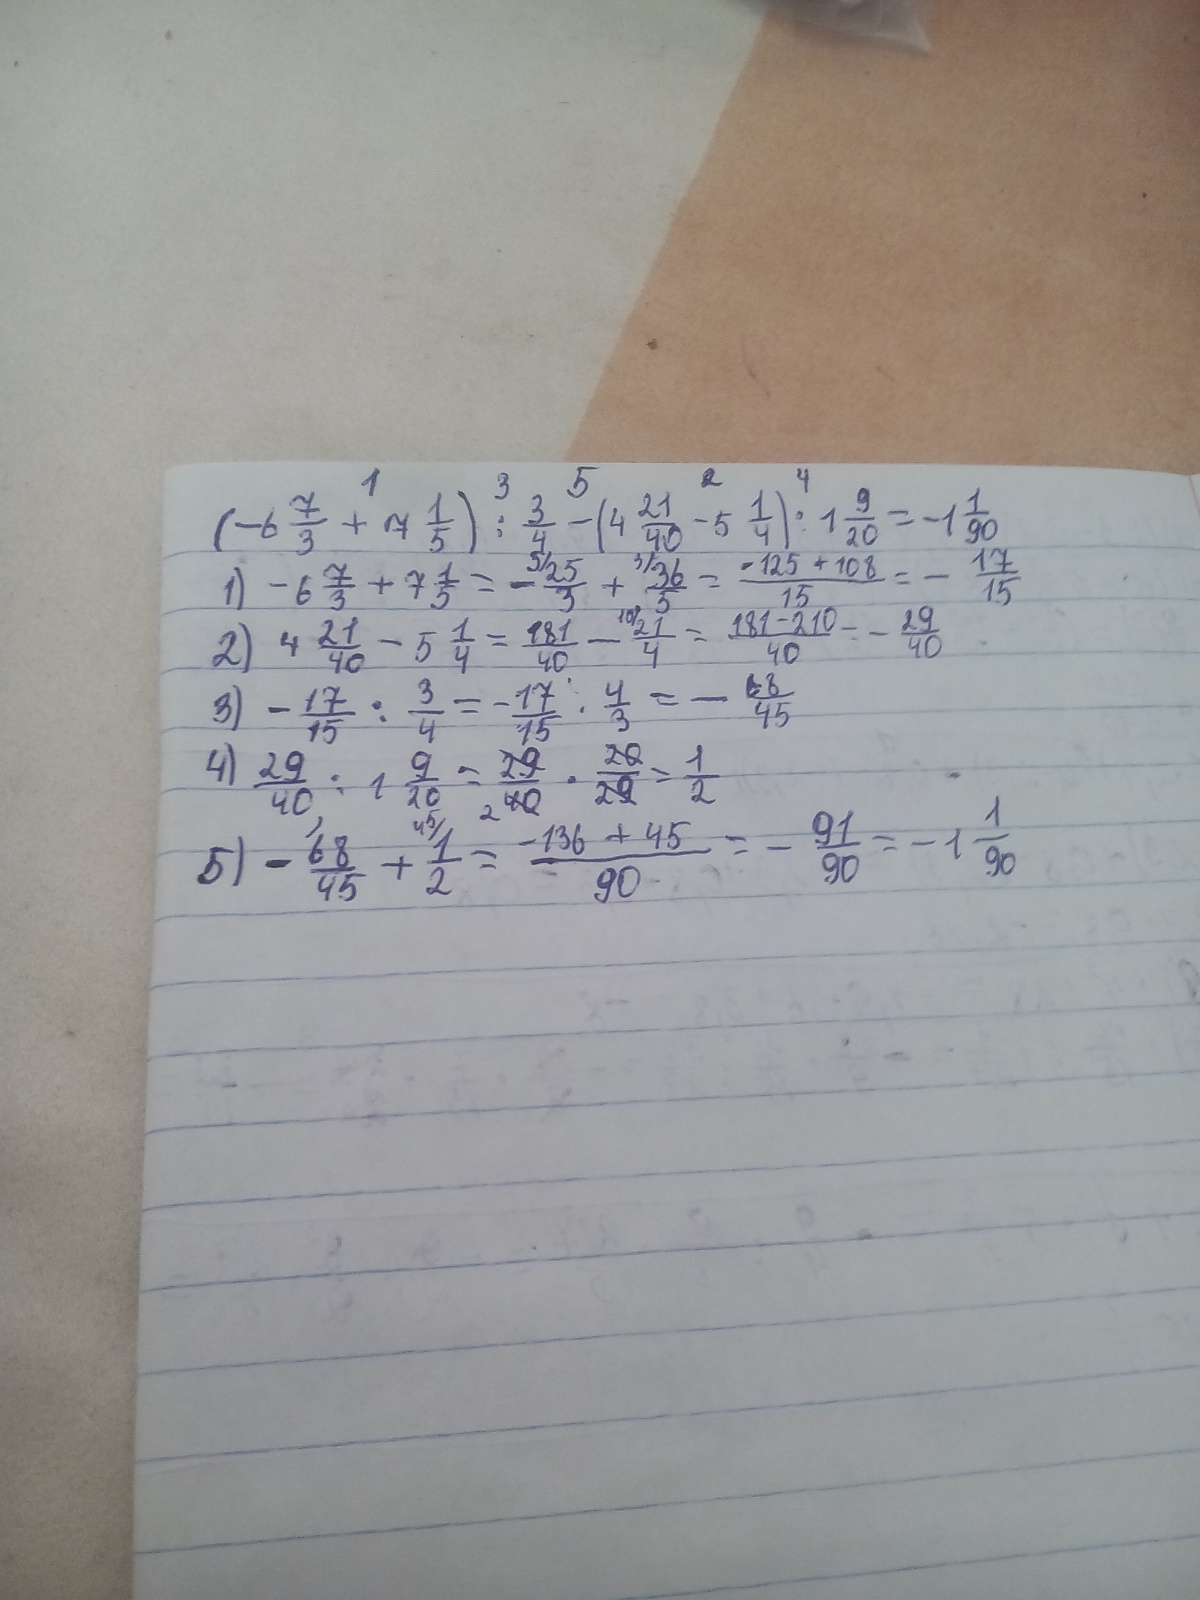 (-6 7/3 + 7 1/5) : 3/4 - (4 21/40 - 5 1/4) : 1 9/20 = -1 1/90
1) -6 7/3 + 7 1/5 = - 25/3 + 36/5 = -125 + 108/15 = - 17/15
2) 4 21/40 - 5 1/4 = 181/40 - 21/4 = 181-210/40 = - 29/40
3) - 17/15 : 3/4 = - 17/15 · 4/3 = - 68/45
4) 29/40 : 1 9/20 = 29/40 · 20/29 = 1/2
5) - 68/45 + 1/2 = -136 + 45/90 = - 91/90 = -1 1/90